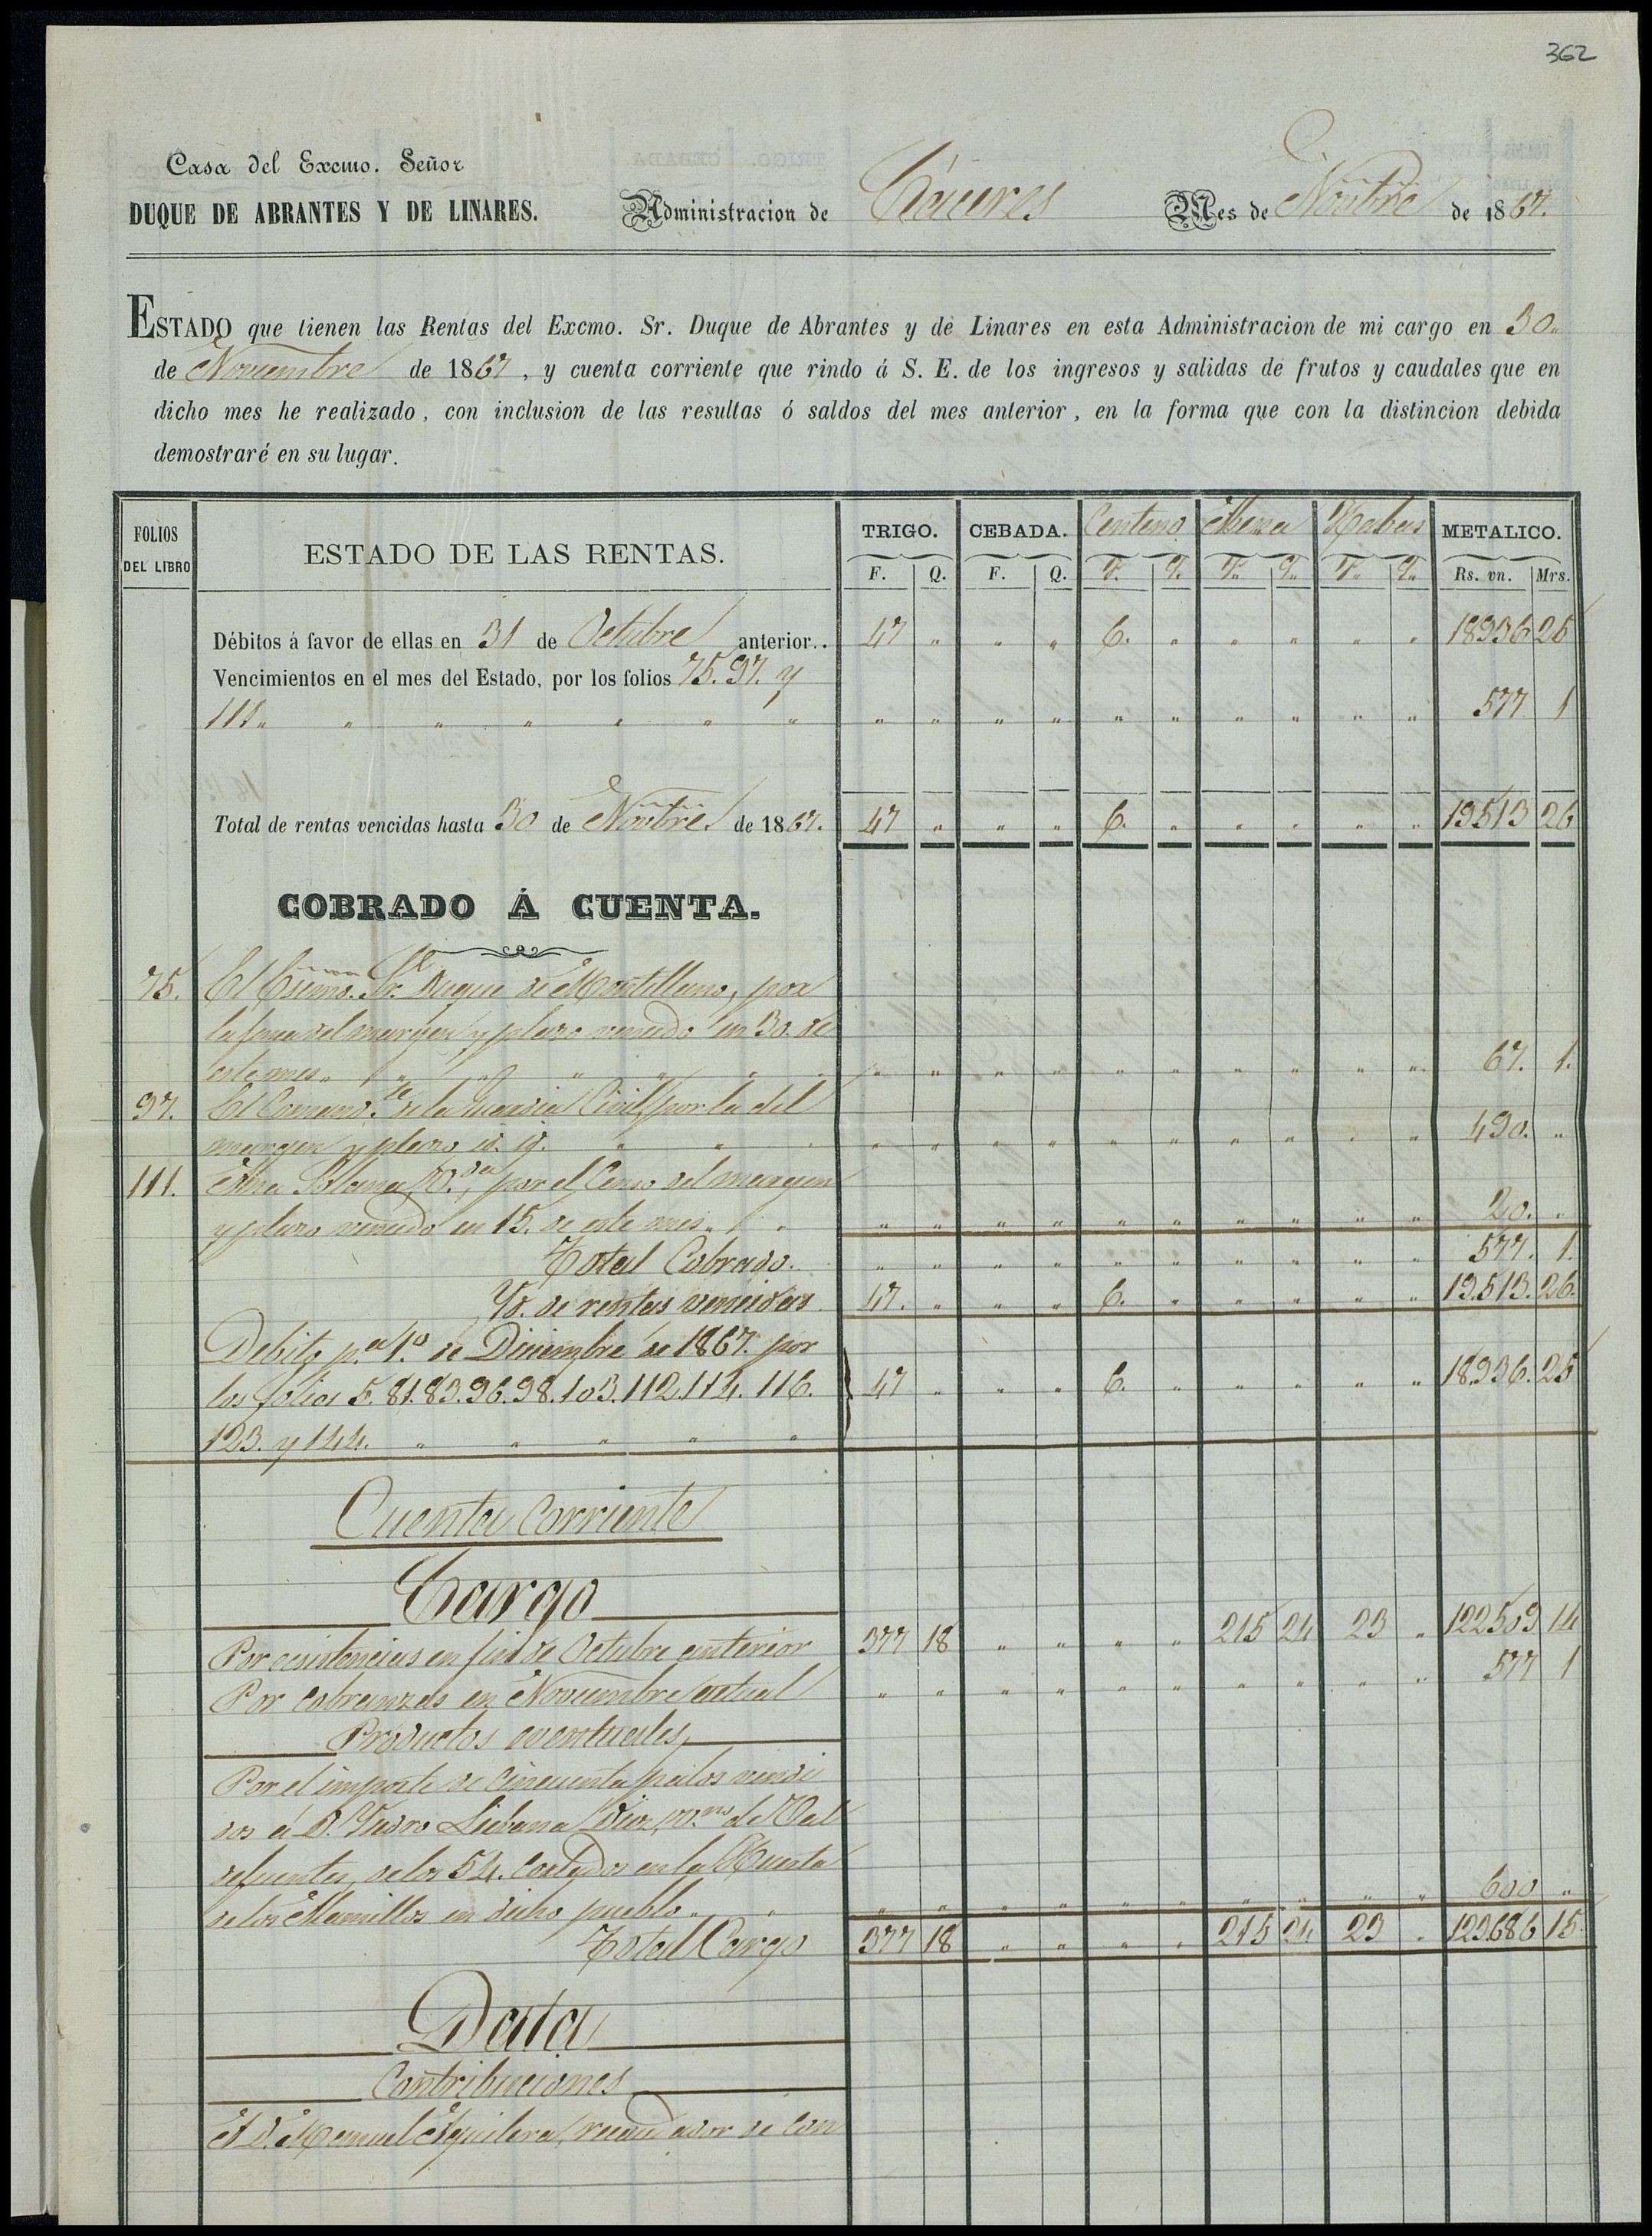 362
Casa del Excmo. Señor
DUQUE DE ABRANTES Y DE LINARES.
Administracion de Cáceres
Mes de Novbre de 1867.
ESTADO que tienen las Rentas del Excmo. Sr. Duque de Abrantes y de Linares en esta Administracion de mi cargo en 30
de Noviembre de 1867, y cuenta corriente que rindo á S. E. de los ingresos y salidas de frutos y caudales que en
dicho mes he realizado, con inclusion de las resultas ó saldos del mes anterior, en la forma que con la distincion debida
demostraré en su lugar.
FOLIOS DEL LIBRO ESTADO DE LAS RENTAS. TRIGO. CEBADA. Centeno Abena Habas METALICO.
F. Q. F. Q. F. Q. F. Q. F. Q. Rs. vn. Mrs.
Débitos á favor de ellas en 31 de Octubre anterior.. 47 " " " 6. " " " " " 18936 25
Vencimientos en el mes del Estado, por los folios 75. 97. y
111 " " " " " " " " " " " " " " " " " 577 1
Total de rentas vencidas hasta 30 de Novbre de 1867. 47 " " " 6. " " " " " 19513 26
COBRADO Á CUENTA.
75. El Esmo. Sr. Duque de Montellano, por
la finca del margen y plazo vencido en 30. de
este mes " " " " " " " " " " " " " " " 67. 1.
97. El Comand.te de la Guardia Civil, por la del
margen y plazo id. id. " " " " " " " " " " " " 490. "
111. Ana Solana, V.da, por el Censo del margen
y plazo vencido en 15. de este mes " " " " " " " " " " " 20. "
Total Cobrado. " " " " " " " " " " 577. 1.
Yd. de rentas vencidas 47. " " " 6. " " " " " 19.513. 26.
Debito p.a 1.o de Diciembre de 1867. por
los folios 5. 81. 83. 96. 98. 103. 112. 114. 116. 47 " " " 6. " " " " " 18.936. 25
123. y 144. " " " " "
Cuenta Corriente
Cargo
Por existencias en fin de Octubre anterior 377 18 " " " " 215 24 23 " 122509 14
Por cobranzas en Noviembre actual " " " " " " " " " " 577 1
Productos eventuales
Por el importe de cincuenta palos vendi
dos á D. Pedro Diez, V.no de Val
defuentes, de los 54. cortados en la Huerta
de los en dicho pueblo " " " " " " " " " " " " 600 "
Total Cargo 377 18 " " " " 215 24 23 " 123.686 15
Data
Contribuciones
A D. Manuel Aguilera, recaudador de con